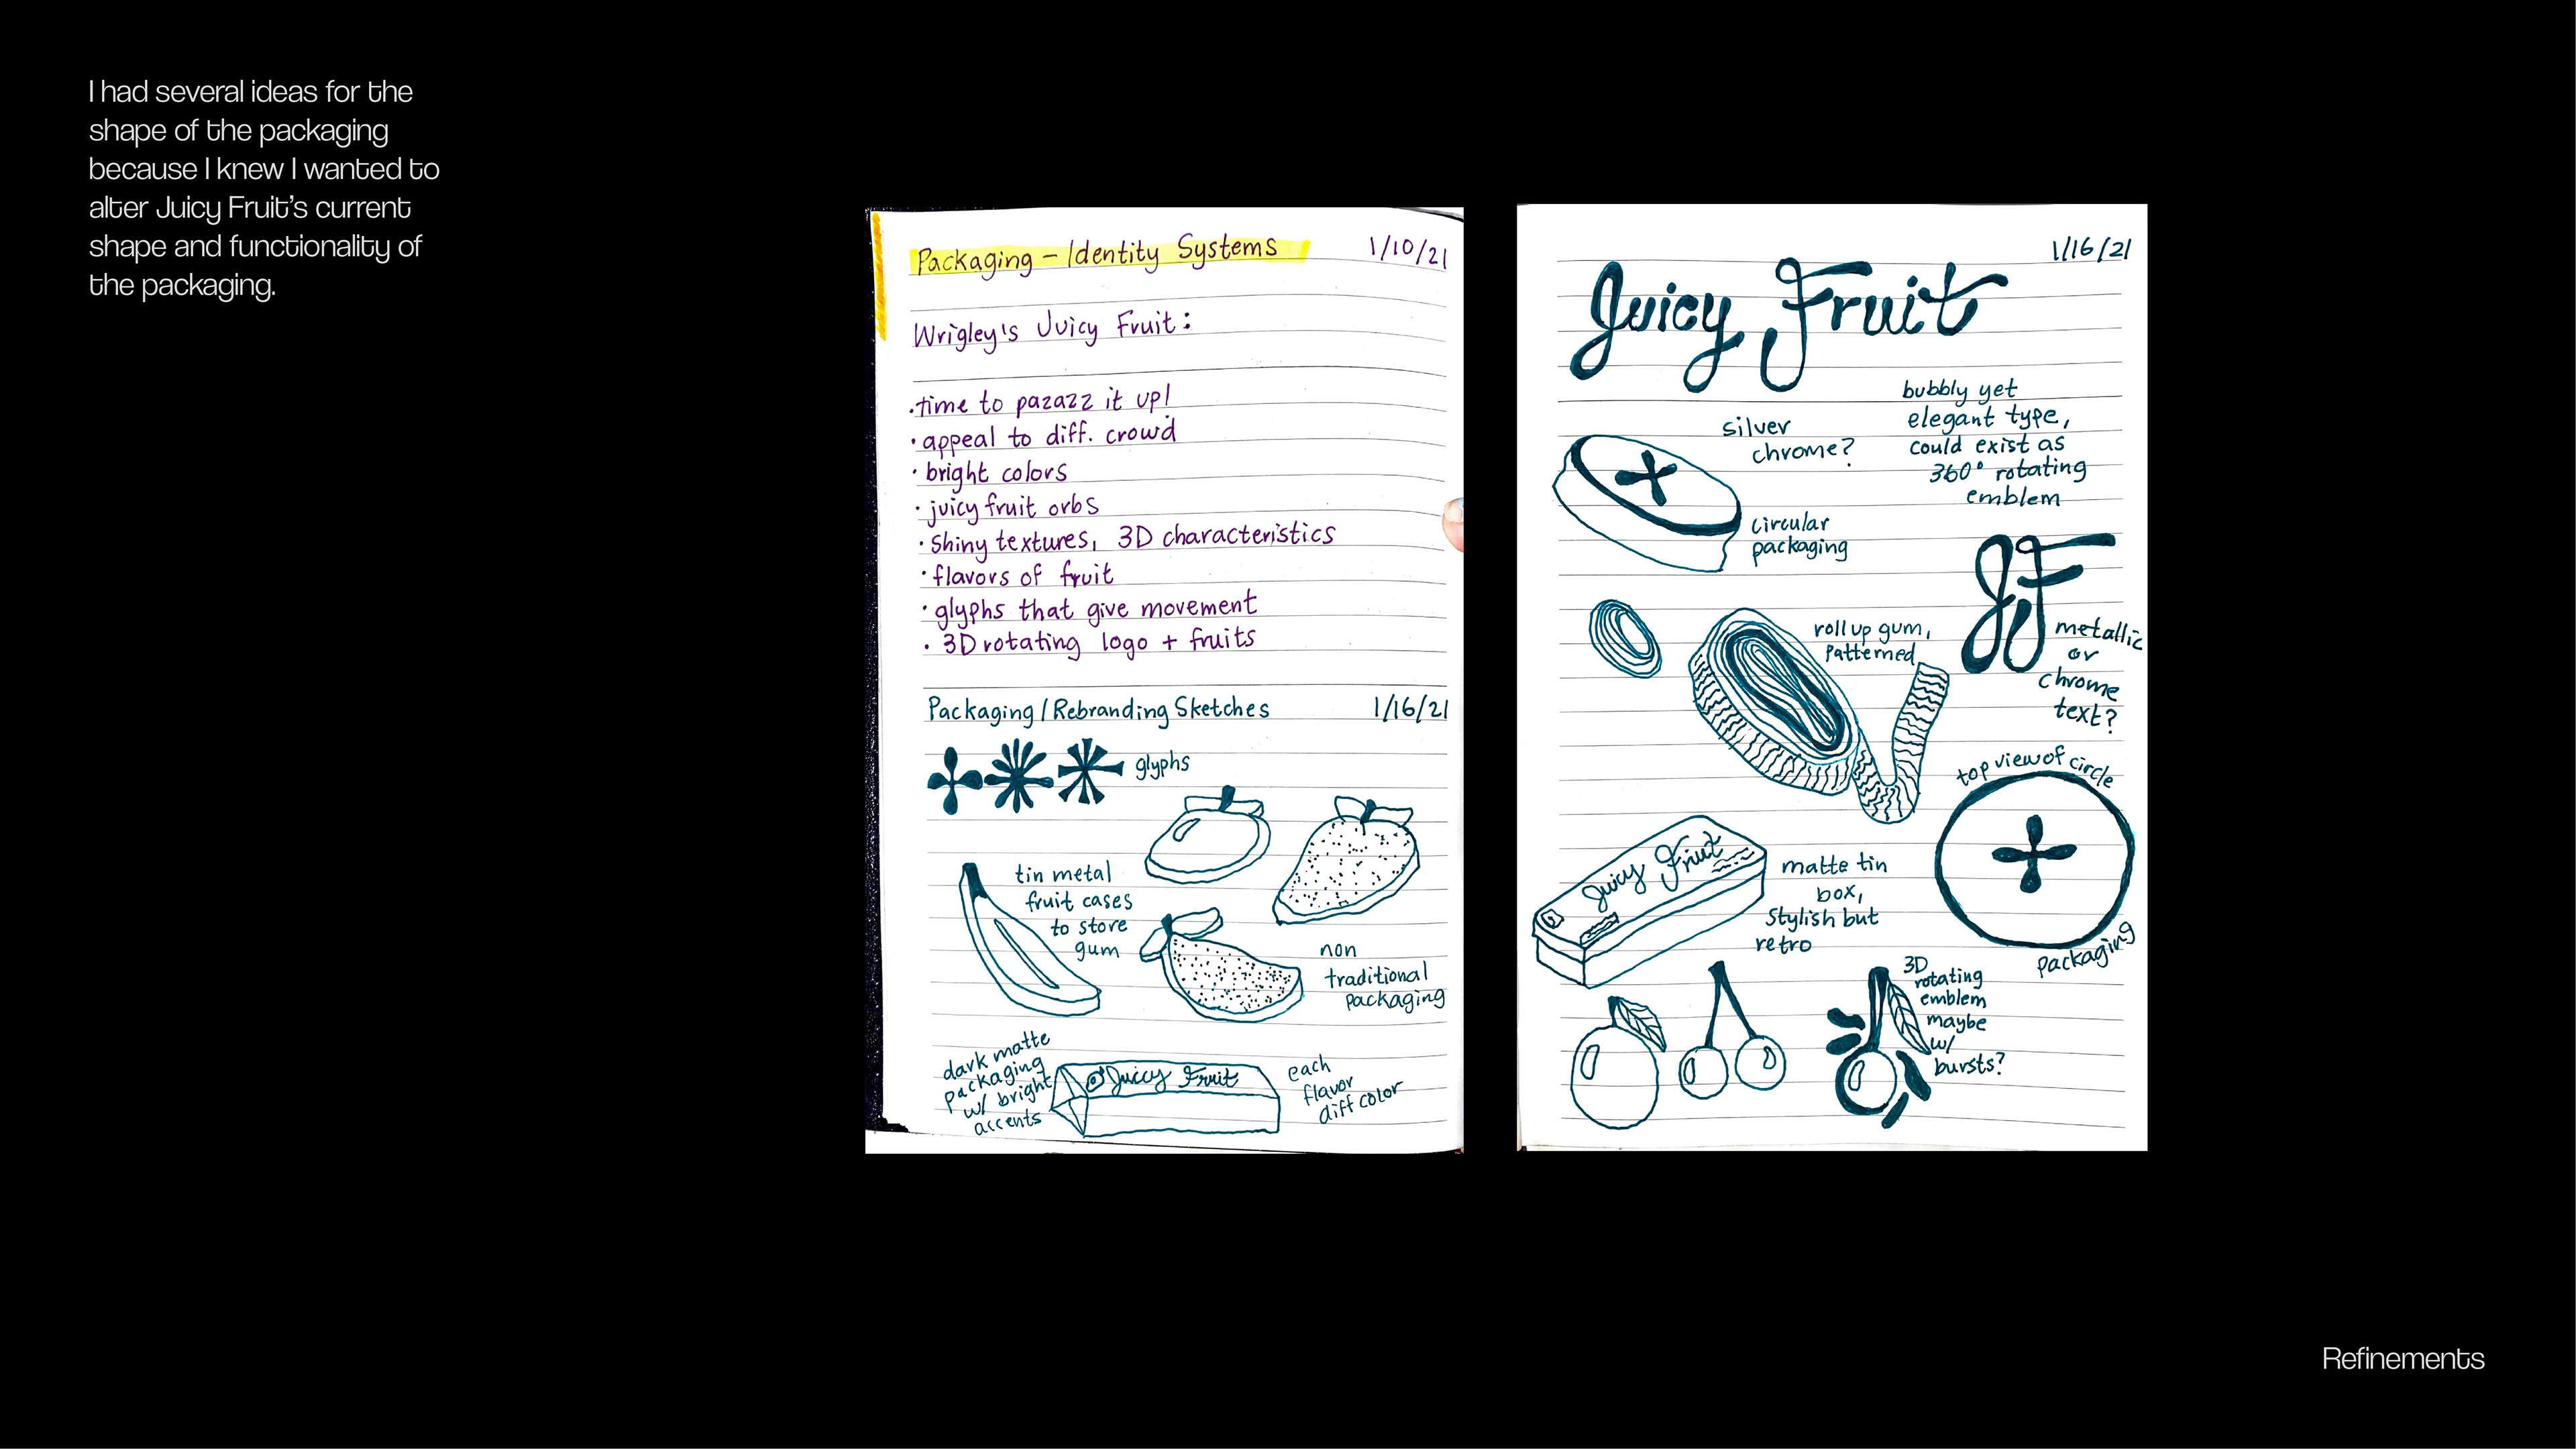 I had several ideas for the
shape of the packaging
because I knew I wanted to
alter Juicy Fruit's current
shape and functionality of
the packaging.
Packaging - Identity Systems 1/10/21
Wrigley's Juicy Fruit:
·time to pazazz it up!
·appeal to diff. crowd
·bright colors
·juicy fruit orbs
·Shiny textures, 3D characteristics
·flavors of fruit
·glyphs that give movement
·3D rotating logo + fruits
Packaging/Rebranding Sketches 1/16/21
glyphs
tin metal
fruit cases
to store
gum
non
traditional
packaging
dark matte
packaging
w/ bright
accents
Juicy Fruit
each
flavor
diff color
1/16/21
Juicy Fruit
bubbly yet
elegant type,
could exist as
360° rotating
emblem
silver
chrome?
circular
packaging
JF
roll up gum,
patterned
metallic
or
chrome
text?
top view of circle
packaging
Juicy Fruit
matte tin
box,
Stylish but
retro
3D
rotating
emblem
maybe
w/
bursts?
Refinements